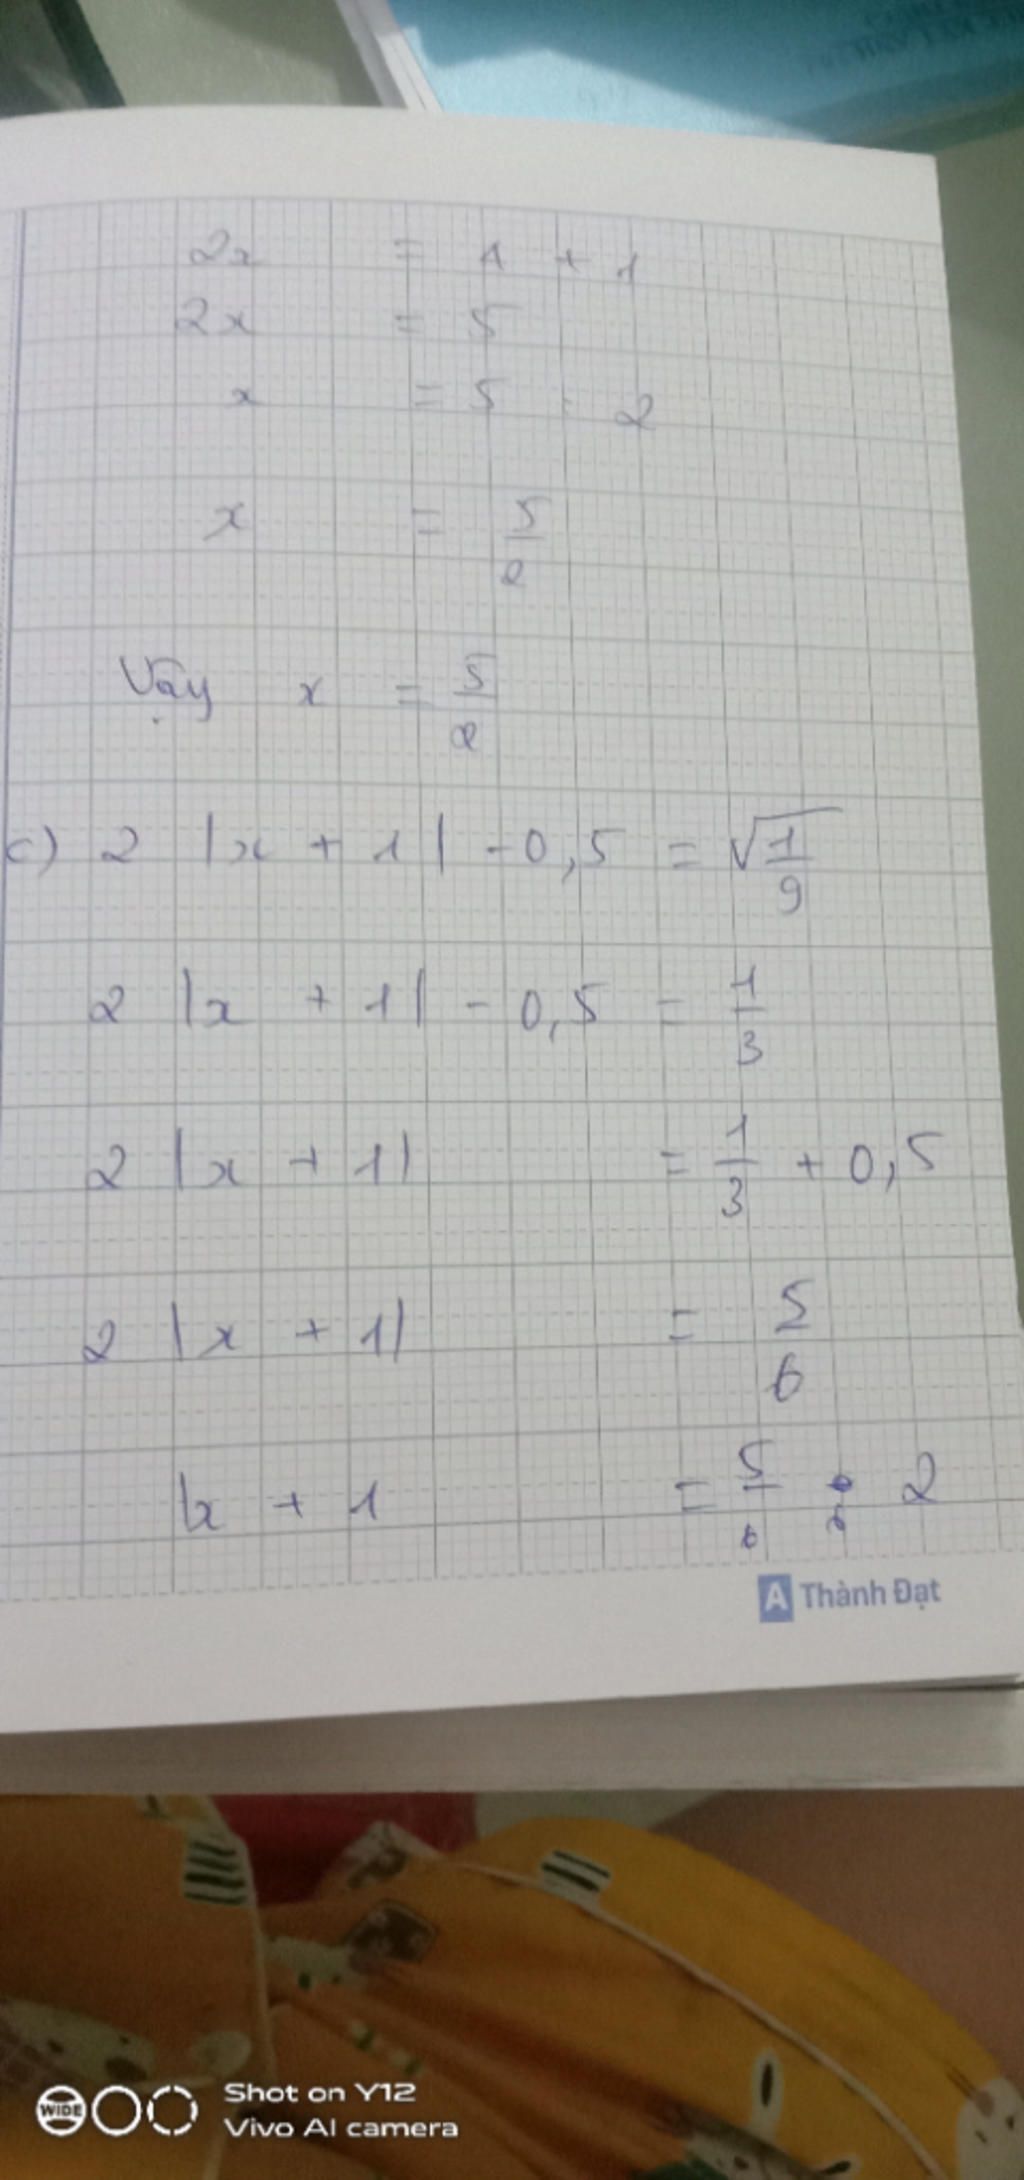 2x = 4 + 1
2x = 5
x = 5 : 2
x = 5/2
Vậy x = 5/2
c) 2 |x + 1| - 0,5 = √1/9
2 |x + 1| - 0,5 = 1/3
2 |x + 1| = 1/3 + 0,5
2 |x + 1| = 5/6
|x + 1 = 5/6 : 2
A Thành Đạt
WIDE
Shot on Y12
Vivo AI camera